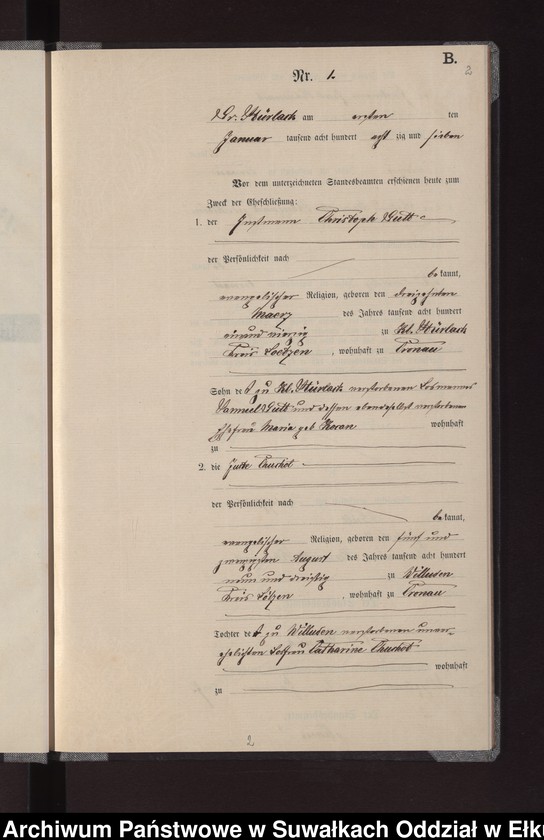 B.
2
Nr. 1.
Gr. Stürlack am ersten ten
Januar tausend acht hundert acht zig und sieben
Vor dem unterzeichneten Standesbeamten erschienen heute zum
Zweck der Eheschließung:
1. der Instmann Christoph Gutt
der Persönlichkeit nach
bekannt,
evangelischer Religion, geboren den dreizehnten
Maerz des Jahres tausend acht hundert
einund vierzig zu Kl. Stürlack
Kreis Loetzen, wohnhaft zu Cronau
Sohn des zu Kl. Stürlack verstorbenen Losmannes
Samuel Gutt und dessen ebendaselbst verstorbenen
Ehefrau Maria geb. wohnhaft
zu
2. die
der Persönlichkeit nach
bekannt,
evangelischer Religion, geboren den fünf und
zwanzigsten August des Jahres tausend acht hundert
neun und dreißig zu Willuden
Kreis Lötzen, wohnhaft zu Cronau
Tochter der zu Willuden verstorbenen unver-
ehelichten Losfrau Catharine
wohnhaft
zu
2
Archiwum Państwowe w Suwałkach Oddział w Ełku